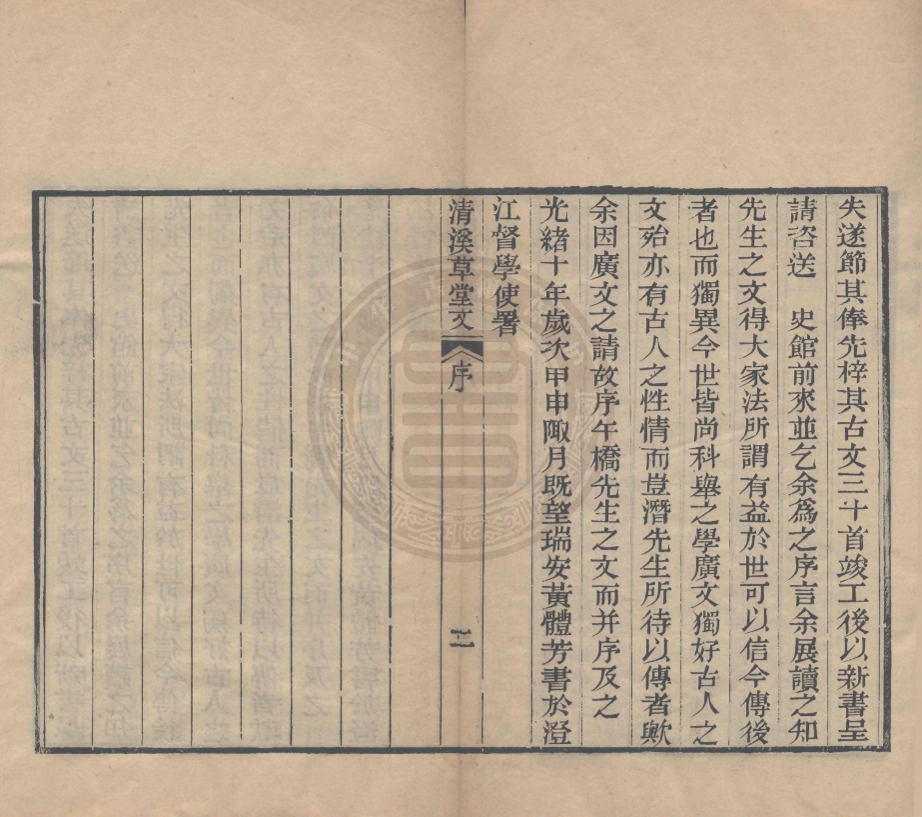 失遂節其俸先梓其古文三十首竣工後以新書呈
請咨送　史館前來並乞余爲之序言余展讀之知
先生之文得大家法所謂有益於世可以信今傳後
者也而獨異今世皆尚科舉之學廣文獨好古人之
文殆亦有古人之性情而豈潛先生所待以傳者歟
余因廣文之請故序午橋先生之文而并序及之
光緒十年歲次甲申陬月既望瑞安黃體芳書於澄
江督學使署
清溪草堂文　序　二